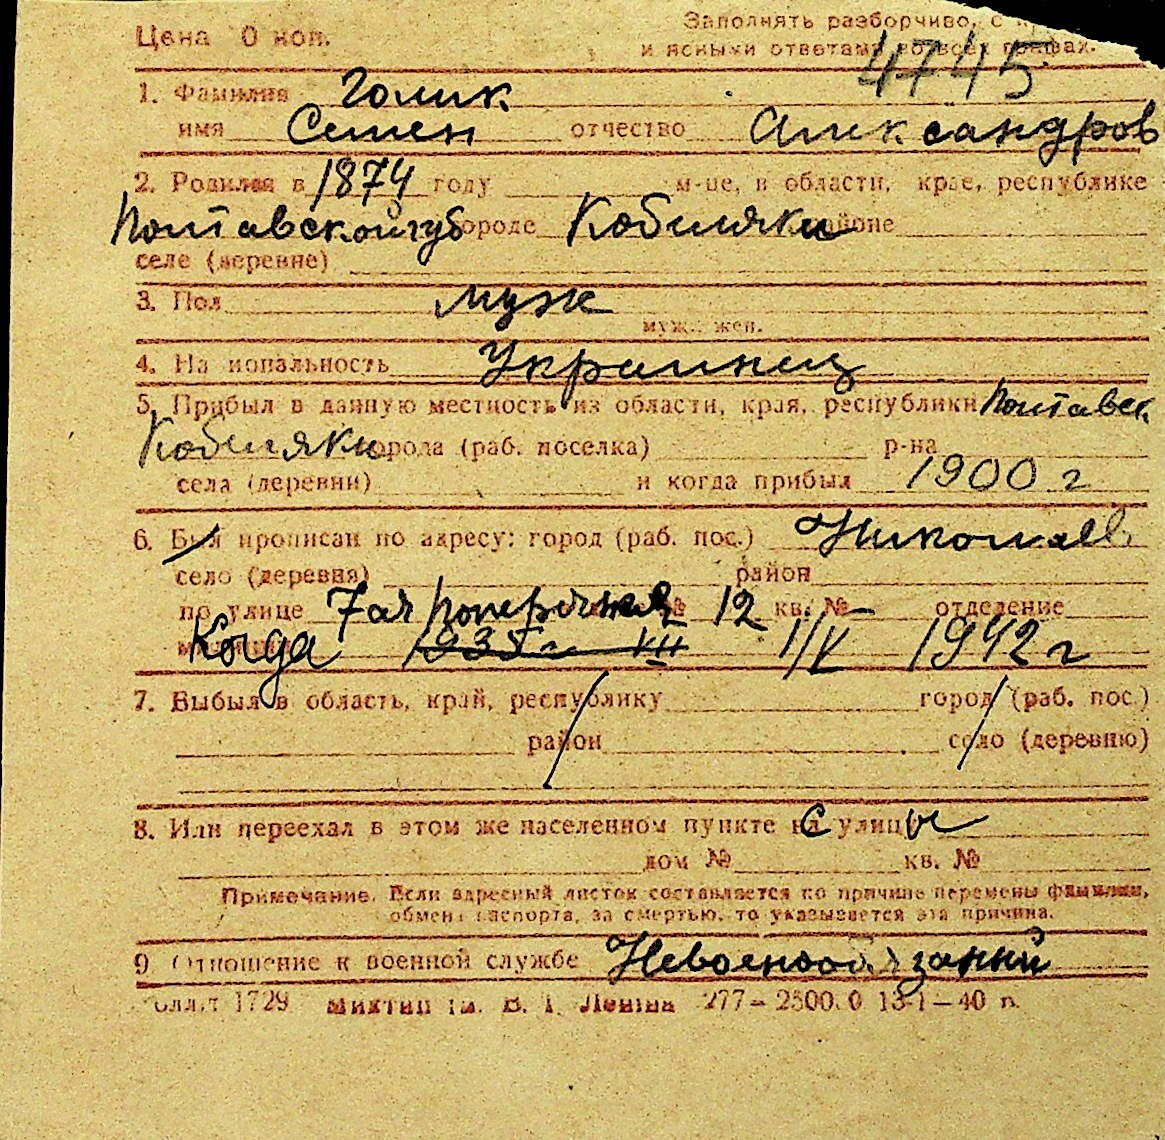 Цена 0 коп.
Заполнять разборчиво, с
и ясными ответами во всех графах.
4745
1. Фамилия Голик
имя Семен отчество Александров
2. Родился в 1874 году м-це, в области, крае, республике
Полтавской губ городе Кобиляки районе
селе (деревне)
3. Пол муж
муж., жен.
4. Национальность Украинец
5. Прибыл в данную местность из области, края, республики Полтавск
Кобиляки города (раб. поселка) р-на
села (деревни) и когда прибыл 1900 г
6. Был прописан по адресу: город (раб. пос.) Николаев
село (деревня) район
по улице 7ая поперечная № 12 кв. № – отделение
милиции Когда 1935 г VII I/V 1942 г
7. Выбыл в область, край, республику город (раб. пос.)
район село (деревню)
8. Или переехал в этом же населенном пункте с улицы
дом № кв. №
Примечание. Если адресный листок составляется по причине перемены фамилии,
обмена паспорта, за смертью, то указывается эта причина.
9 Отношение к военной службе Невоенообязанний
1729 Миктип ім. В. І. Леніна 40 п.